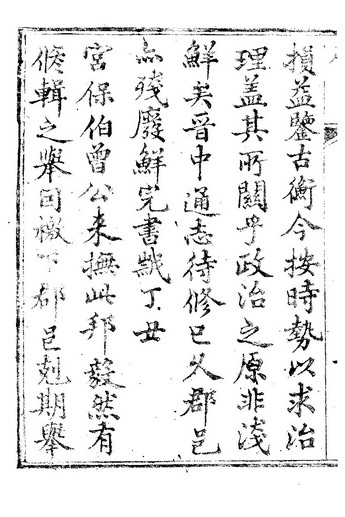 損益鑒古衡今按時勢以求治
理盖其所關乎政治之原非淺
鮮矣晉中通志待修已久郡邑
亦殘廢鮮完書歲丁丑
宮保伯曾公来撫此邦毅然有
脩輯之舉回檄下郡邑剋期舉